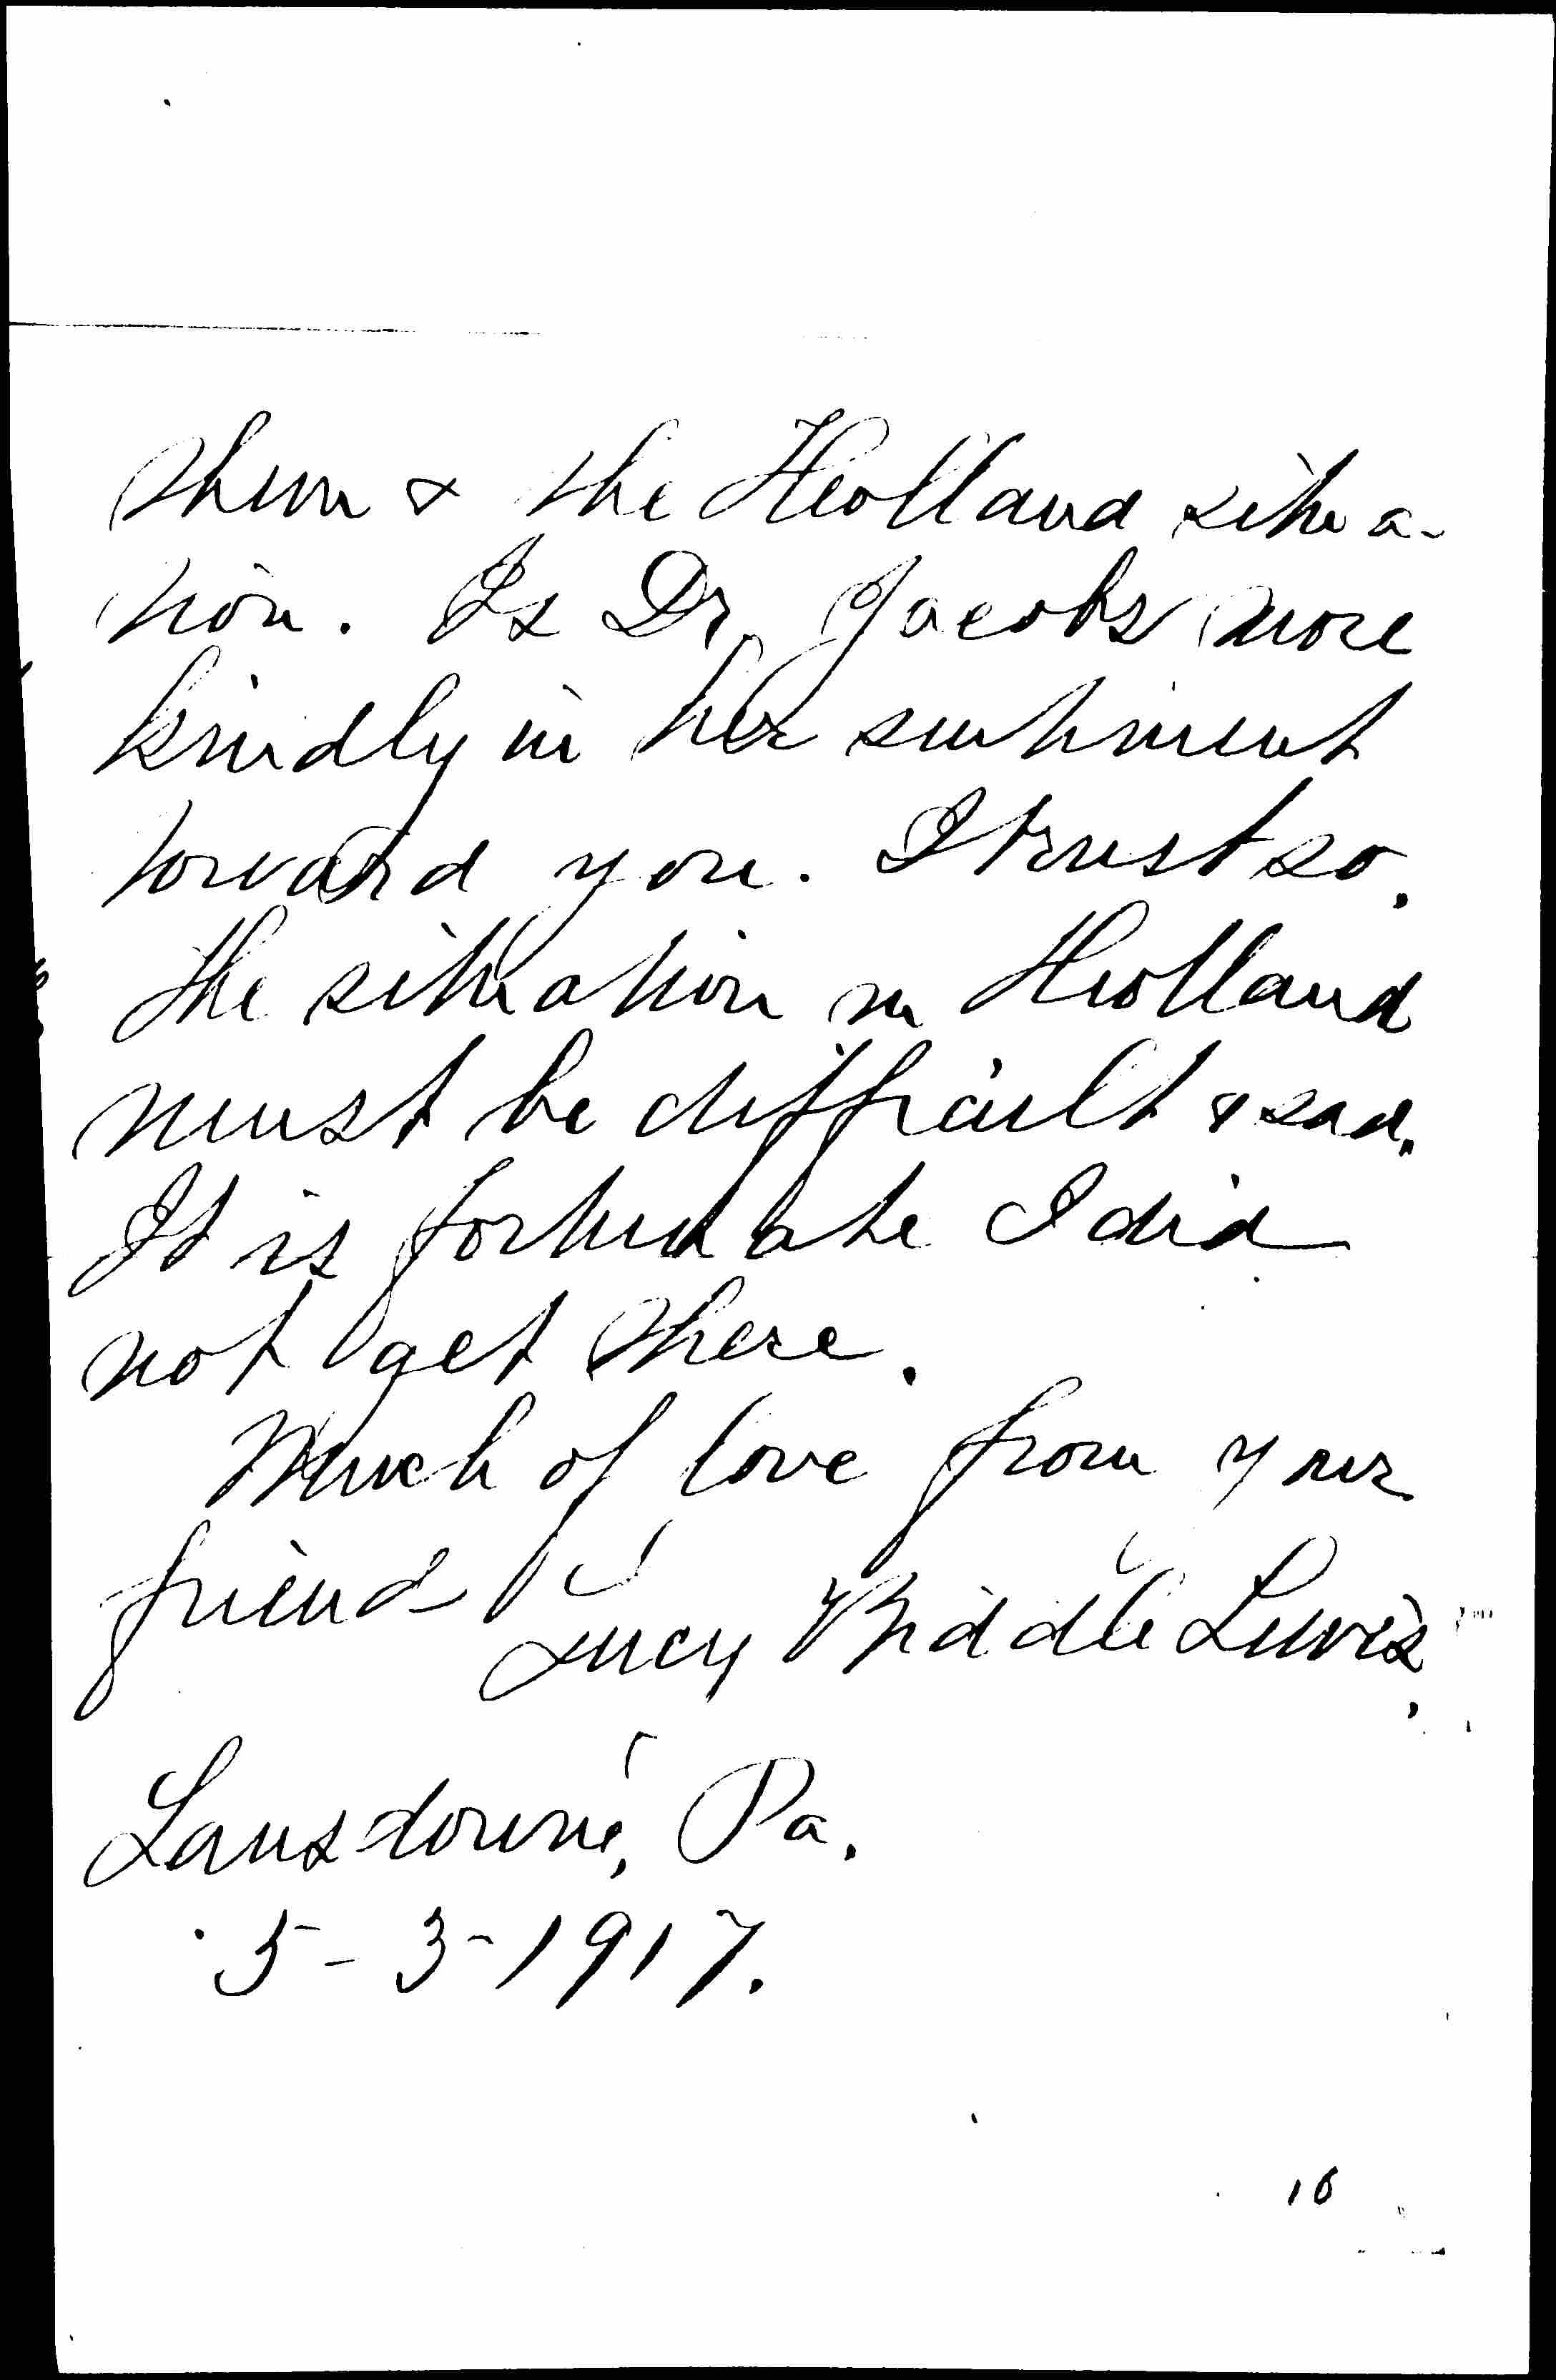 them & the Holland situa-
tion. Is Dr. Jacobs more
kindly in her sentiment
toward you. I trust so.
The situation in Holland
must be difficult & sad.
It is fortunate I did
not get there.
Much of love from your
friend
Lucy Biddle Lewis.
Lansdowne, Pa.
5-3-1917.
16